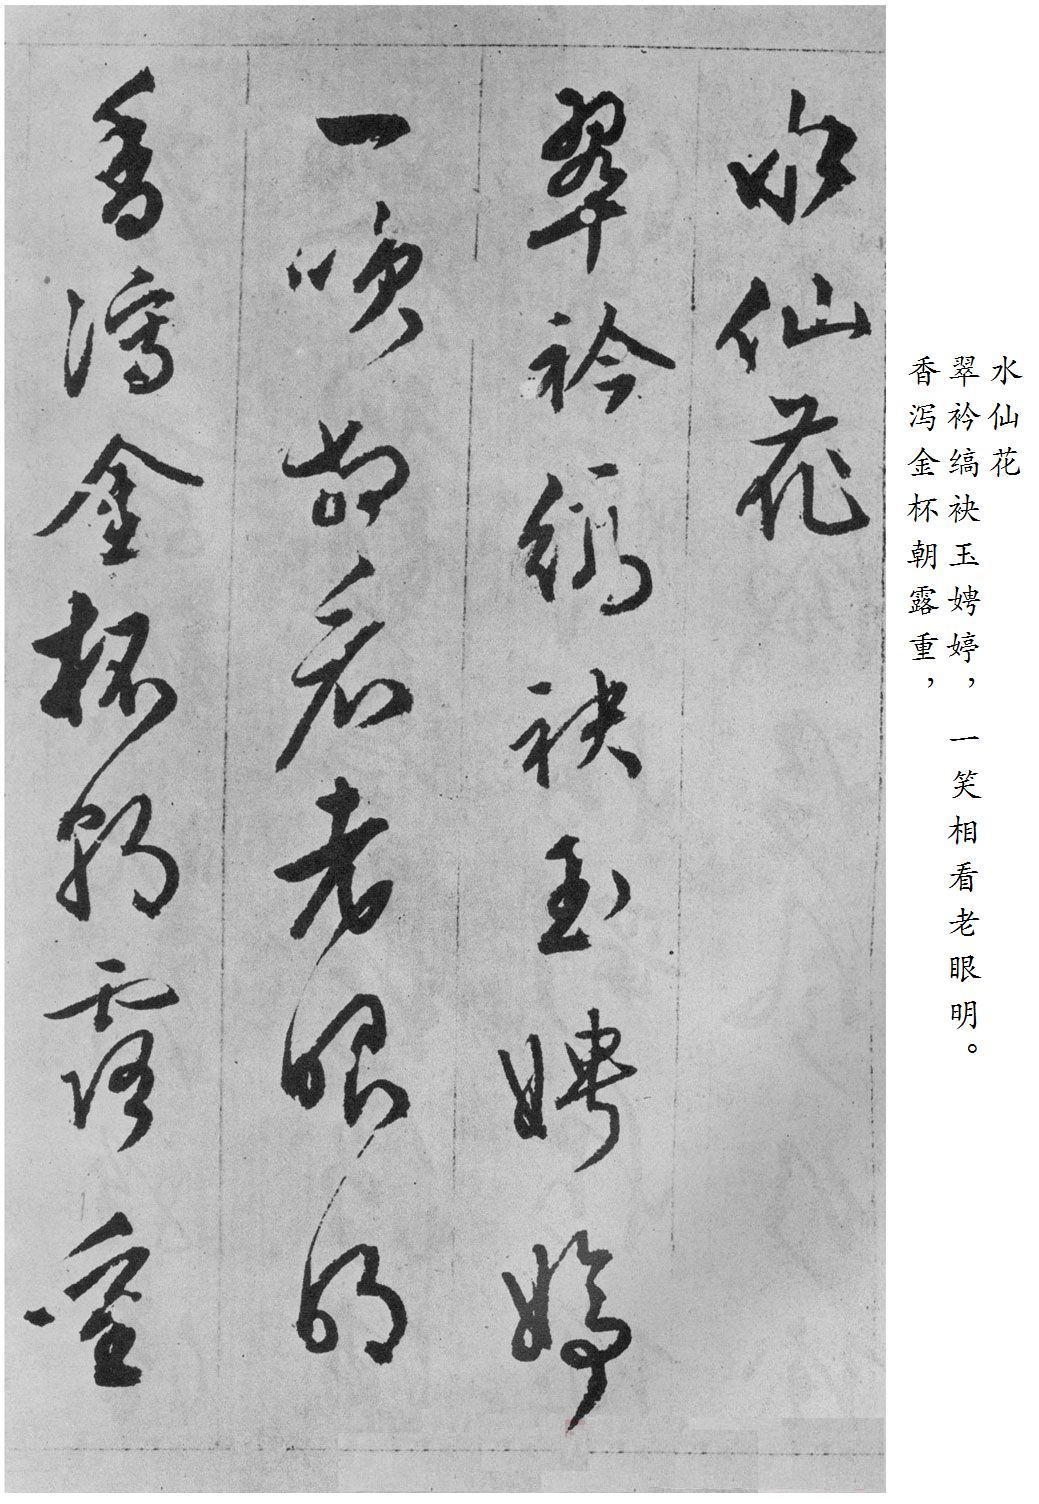 水仙花
翠衿缟袂玉娉婷，一笑相看老眼明。
香泻金杯朝露重，
水仙花
翠衿縞袂玉娉婷
一咲相看老眼明
香瀉金杯朝露重